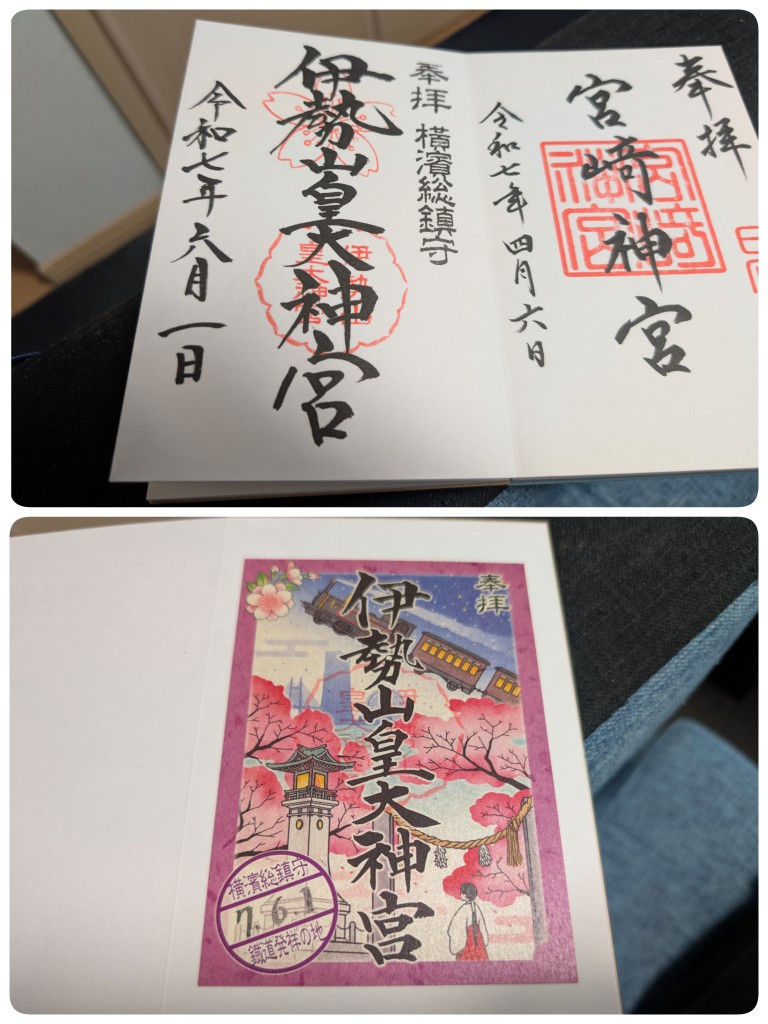 奉拝
宮﨑神宮
令和七年四月六日
奉拝 横濱総鎮守
伊勢山皇大神宮
令和七年六月一日
奉拝
伊勢山皇大神宮
横濱総鎮守
7.6.1
鐵道発祥の地